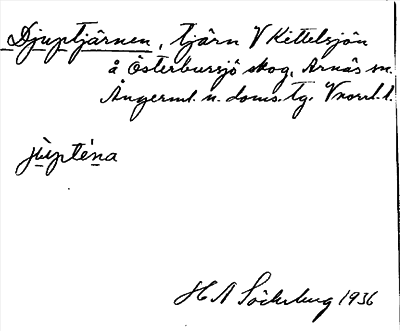 Djuptjärnen, tjärn V Kittelsjön
å Österbursjö skog, Arnäs sn.
Ångerml. n. doms. tg. Vnorrl. l.
jùpténa
H A Söderberg 1936